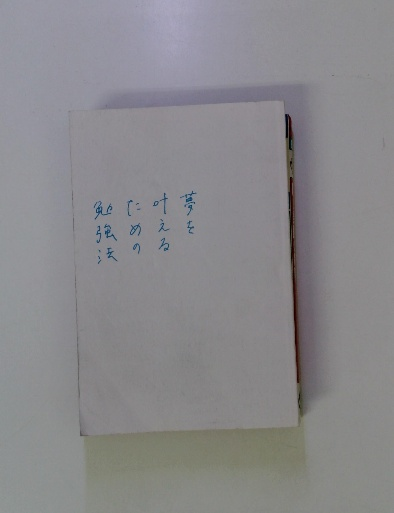 夢を
叶える
ための
勉強法